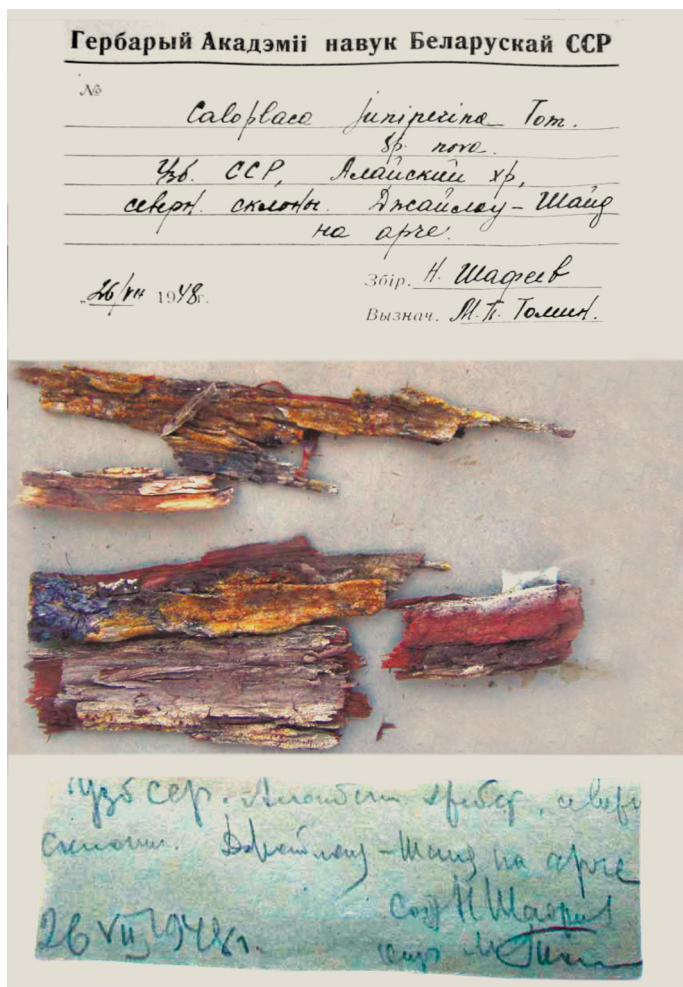 Гербарый Акадэміі навук Беларускай ССР
№
Caloplaca juniperina Tom.
sp. nova.
Узб. ССР, Алайский хр,
северн. склоны. Джайлау-Шаид
на арче.
Збір. Н. Шафеев
„26/VII 1948г.
Вызнач. М. П. Томин.
Узб ССР. Алайский хребет, северн
склоны. Джайлау-Шаид на арче
26 VII 1948г.